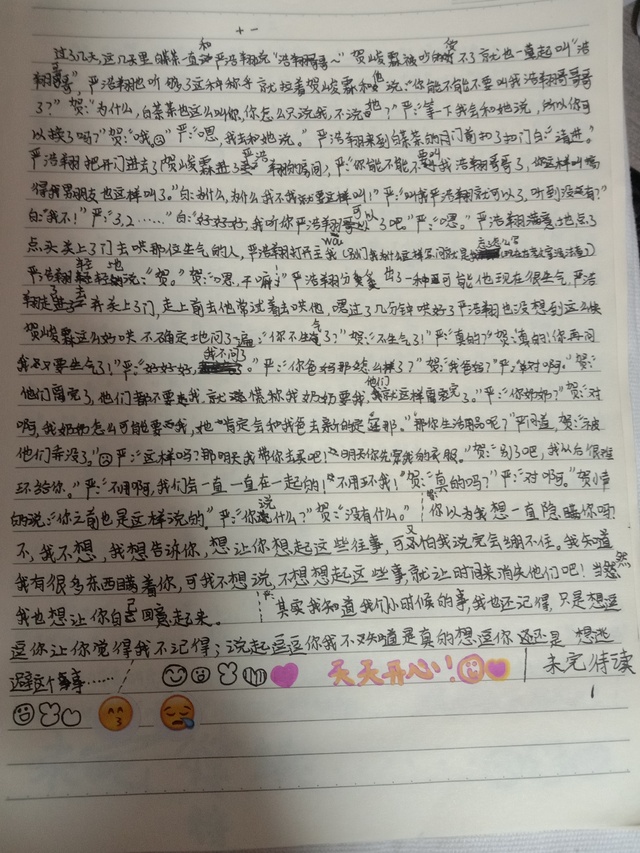 十一
过了几天,这几天里白茶一直和严浩翔说“浩翔哥哥~”贺峻霖被吵的受不了就也一直起叫“浩
翔哥哥”,严浩翔也听够了这种称乎就拉着贺峻霖和他说:“你能不能不要叫我浩翔哥哥
了?”贺:“为什么,白茶茶也这么叫你,你怎么只说我,不说她?”严:“等一下我会和她说,所以你可
以挨了吗?”贺:“哦”严:“嗯,我去和她说。”严浩翔来到白茶茶的门前扣了扣门白:“请进。”
严浩翔把开门进去了贺峻霖进了严浩翔的房间,严:“你能不能不要叫我浩翔哥哥了,你这样叫
得我男朋友也这样叫了。”白:“为什么,为什么我不我就要这样叫!”严:“叫我严浩翔就可以了,听到没有?”
白:“我不!”严:“3,2……”白:“好好好,我听你严浩翔可以了吧。”严:“嗯。”严浩翔满意地点了
点头关上了门去哄那位生气的人,严浩翔打开主我
严浩翔轻轻地说:“贺。”贺:“嗯,干嘛”严浩翔分出了一种可能他现在很生气,严浩
翔走进去并关上了门,走上前去他常试着去哄他,嗯过了几分钟哄好了严浩翔也没想到这么快
贺峻霖这么好哄不确定地问了遍:“你不生气了?”贺:“不生气了!”严:“真的?”贺:“真的!你再问
我又要生气了!”严:“好好好,我不问了。”严:“你爸妈那怎么样了?”贺:“我爸妈?”严:“对啊。”贺:“
他们离完了,他们都不要我,就说慌称我奶奶要我,他们就这样离完了。”严:“你奶奶?”贺:“对
啊,我奶奶怎么可能要我,她肯定会和我爸去新的家那。”“那你生活用品呢?”严问道,贺:“被
他们弄没了。”严:“这样吗?那明天我带你去买吧!今明天你先穿我的衣服。”贺:“别了吧,我以后很难
还给你。”严:“不用啊,我们会一直一直在一起的!不用还我!”贺:“真的吗?”严:“对啊。”贺小声
的说:“你之前也是这样说的”严:“你说什么?”贺:“没有什么。”你以为我想一直隐瞒你吗?
不,我不想,我想告诉你,想让你想起这些往事,可又怕我说完会绷不住。我知道
我有很多东西瞒着你,可我不想说,不想想起这些事,就让时间来消失他们吧!当然
我也想让你自己回意起来。 严:其实我知道我们小时候的事,我也还记得,只是想逗
逗你让你觉得我不记得;说起逗逗你我不知道是真的想逗你还是想逃
避这个事…… 天天开心!! 未完待读
1